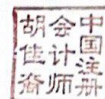 中国注册
会计师
胡佳裔